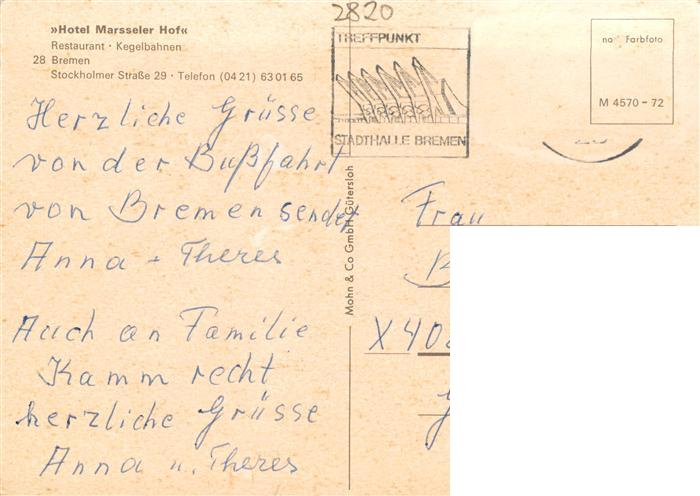 »Hotel Marsseler Hof«
Restaurant · Kegelbahnen
28 Bremen
Stockholmer Straße 29 · Telefon (04 21) 63 01 65
2820
TREFFPUNKT
STADTHALLE BREMEN
no Farbfoto
M 4570 - 72
Herzliche Grüsse
von der Bußfahrt
von Bremen sendet
Anna + Theres
Auch an Familie
Kamm recht
herzliche Grüsse
Anna u. Theres
Mohn & Co GmbH Gütersloh
Frau
X 40